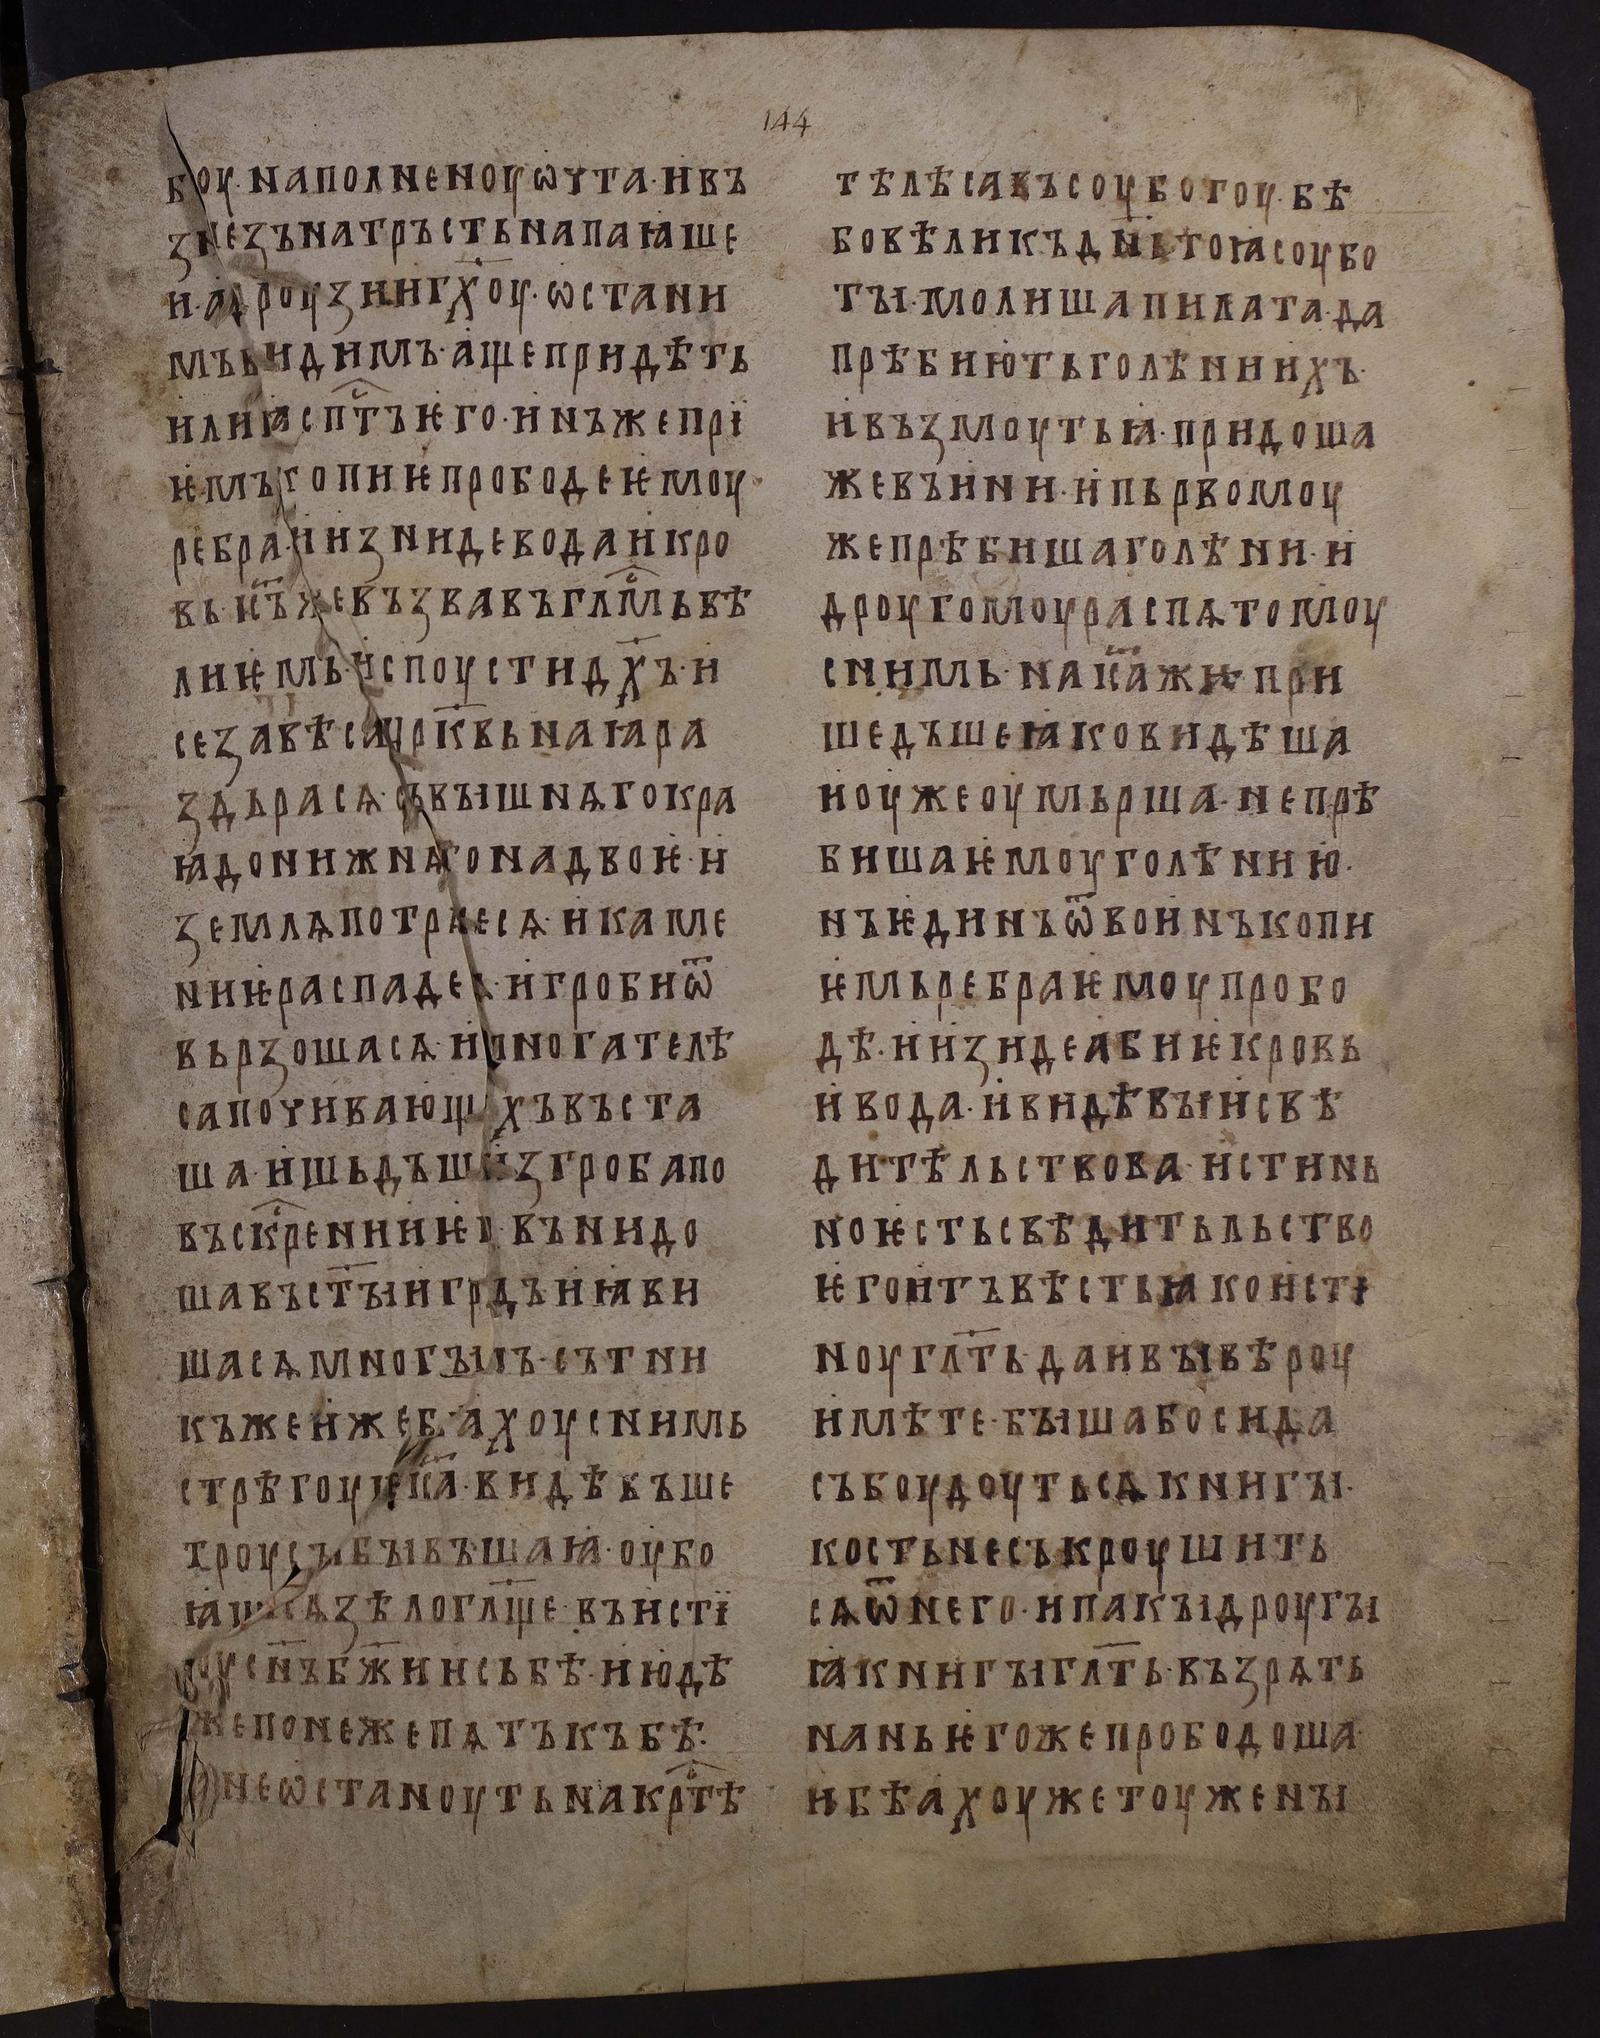 144
боу·наполненоуѡчта·ивъ
знезънатрьстьнапаꙗше
и·адроузииг҃хоу·ѡстани
мъвидимъ·ащепридѣть
илиꙗсп҃тъѥго·инъжепрї
ѥмъкопиѥпрободеѥмоу
ребра·иизнидеводаикро
вь·ис҃ъжевъзвавъглⷭ҇мьвѣ
лиѥмь·испоустид҃хъ·и
сезавѣсацр҃квьнаꙗра
здьрасѧ·съвышнѧгокра
ꙗдонижнѧгонадвоѥ·и
землѧпотрѧсесѧ·икаме
ниѥраспадесѧ·игробиѿ
вьрзошасѧ·имногателѣ
сапочивающихъвъста
ша·ишьдъшиизгробапо
въскⷭ҇рениииѥго·вънидо
шавъст҃ыиградъиꙗви
шасѧмногымъ·сътни
къжеижебѧхоуснимь
стрѣгоущеис҃а·видѣвъше
троусъибывъшаꙗ·оубо
ꙗшасѧзѣлогл҃ще·въистї
ноусн҃ъбж҃иисьбѣ·июдѣ
ѥпонежепѧтъкъбѣ·
данеѡстаноутьнакрⷭ҇тѣ
тѣлѣсавъсоуботоу·бѣ
бовѣликъдн҃ьтоꙗсоубо
ты·молишапилата·да
прѣбиютьголѣниихъ·
ивъзмоутьꙗ·придоша
жевъини·ипьрвомоу
жепрѣбишаголѣни·и
дроугомоураспѧтомоу
снимь·наис҃ажи·при
шедъшеꙗковидѣша
ноужеоумьрша·непрѣ
бишаѥмоуголѣниꙗ·
нъѥдинъѿвоинъкопи
ѥмьребраѥмоупробо
дѣ·иизидеабиѥкровь
ивода·ивидѣвыисвѣ
дитѣльствова·истинь
ноѥстьсвѣдитьльство
ѥгоитъвѣстьꙗкоисті
ноугл҃ть·даивывѣроу
имѣте·бышабосида
събоудоутьсѧкнигы·
костьнесъкроушить
сѧѿнего·ипакыдроугы
ꙗкнигыгл҃ть·възрѧть
наньѥгожепрободоша·
ибѣахоужетоужены